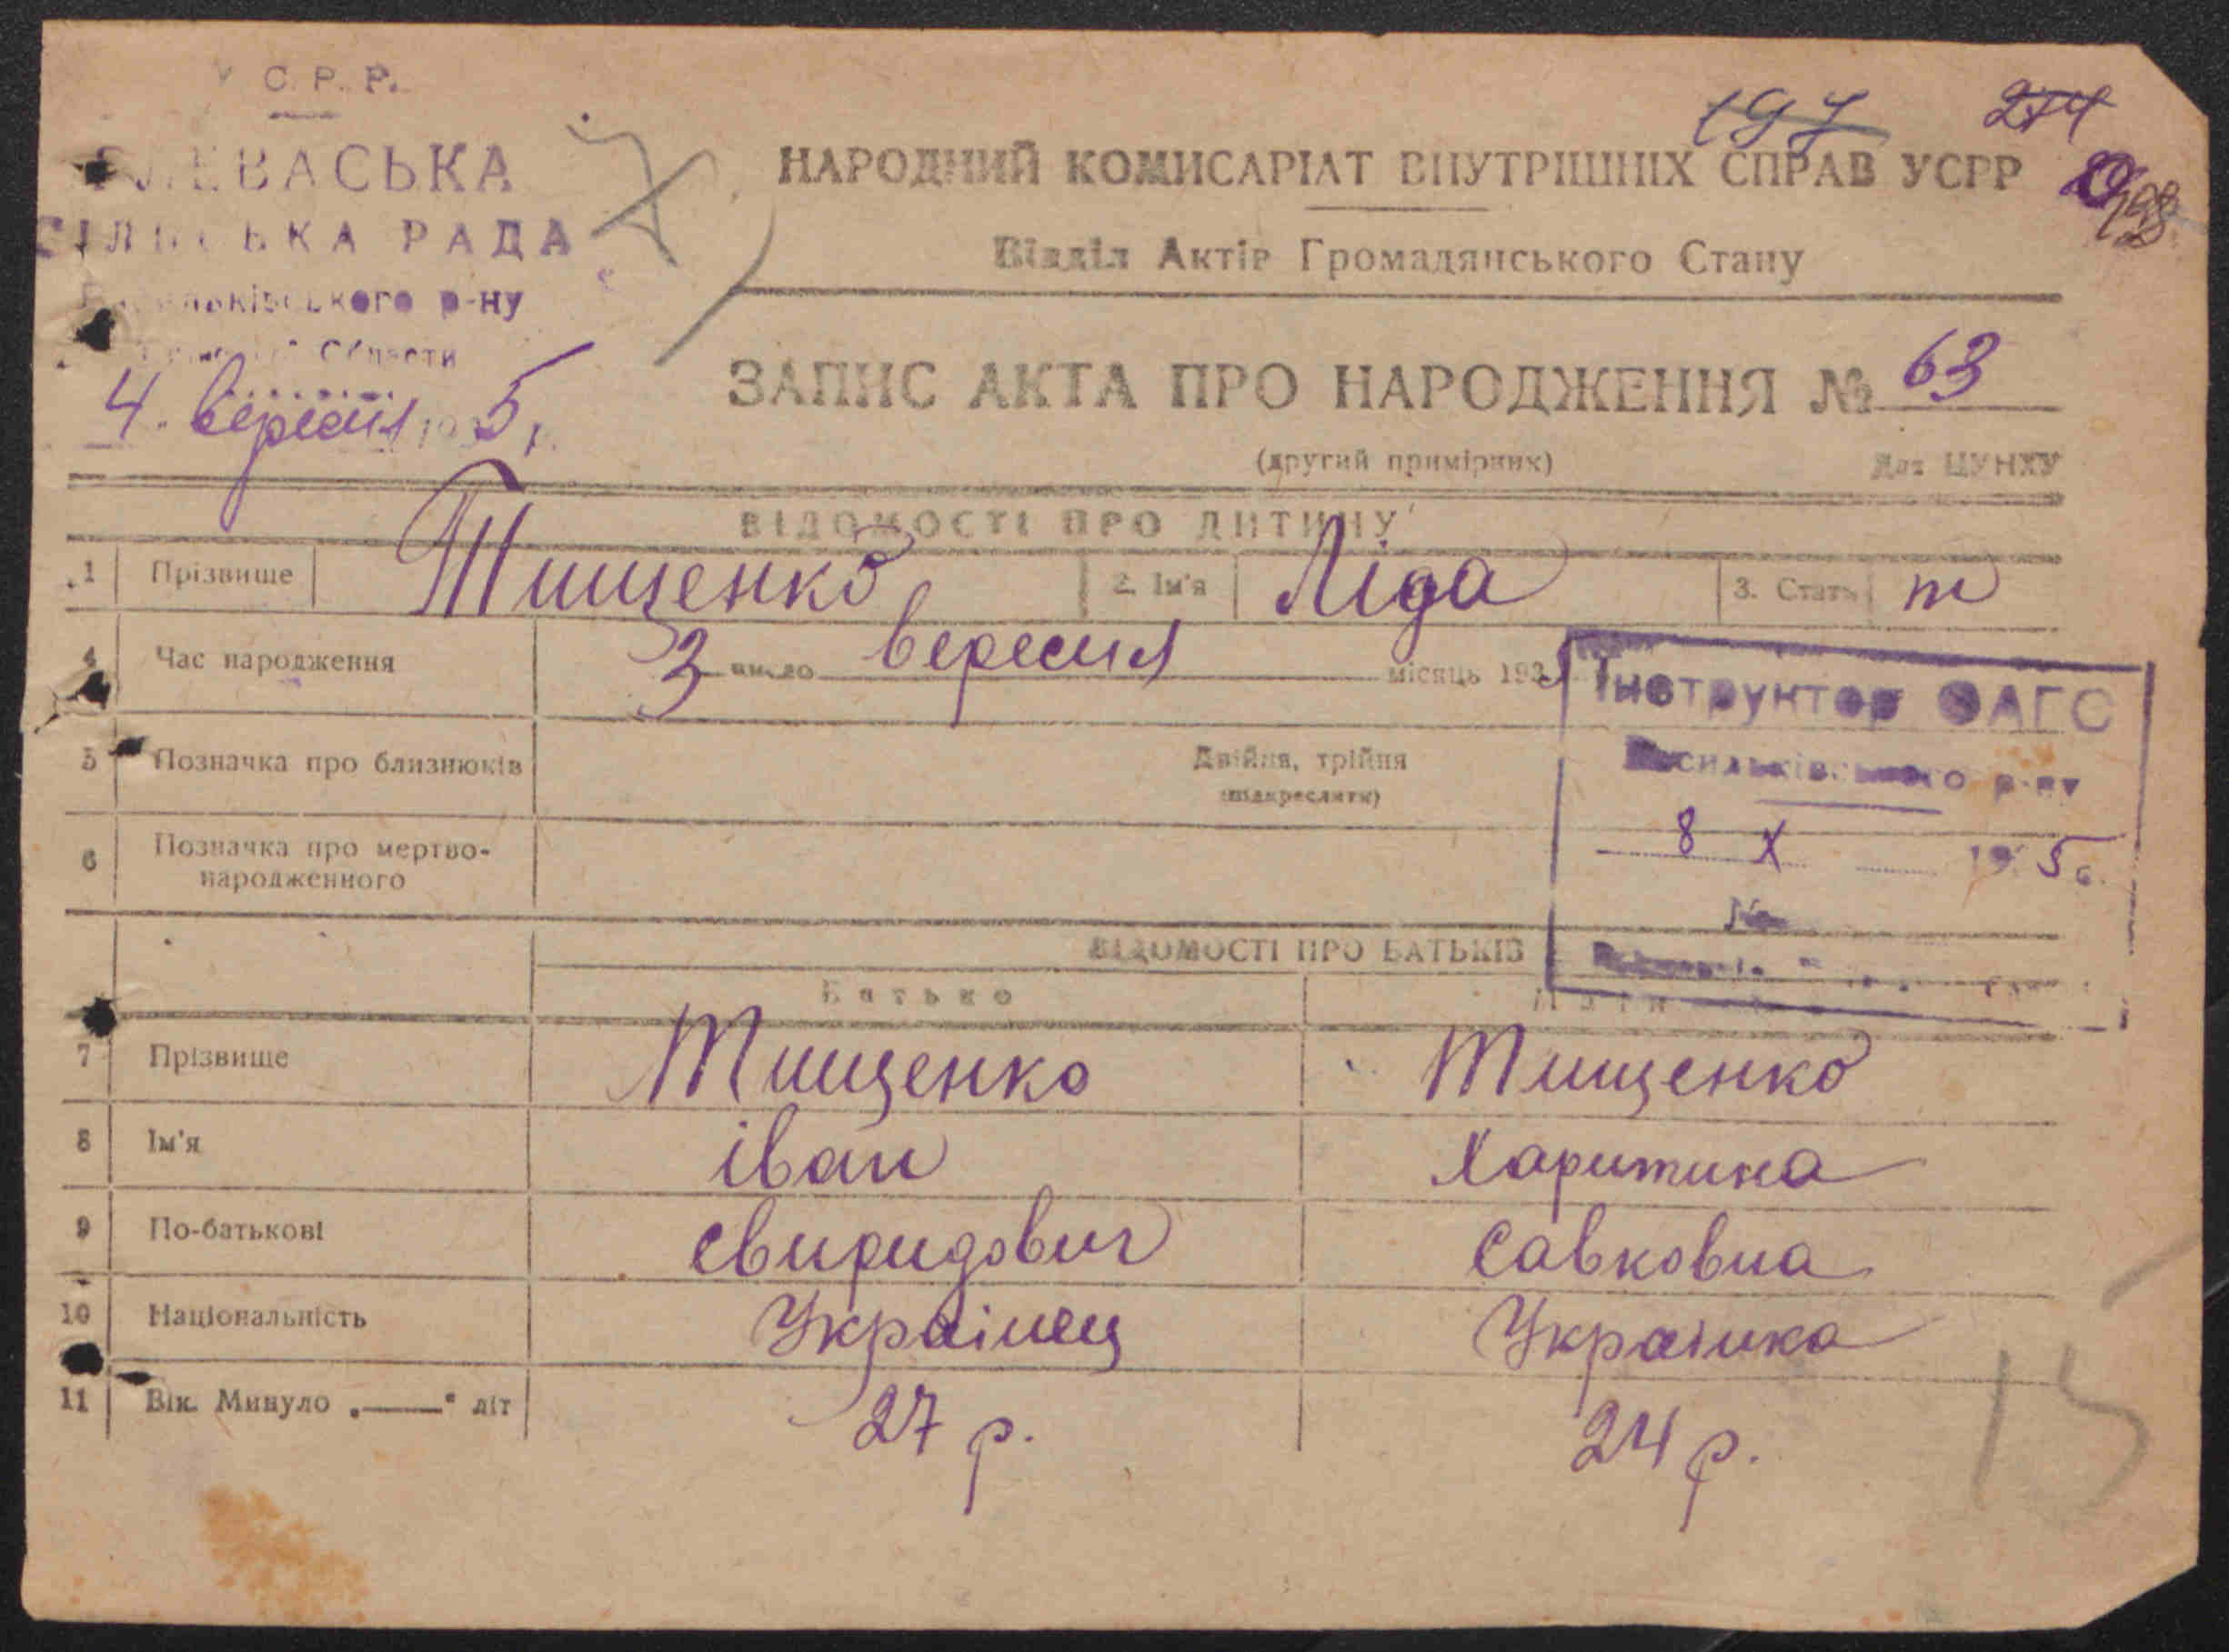 У С. Р. Р.
СІЛЬСЬКА РАДА
Васильківського р-ну
Области
4. вересня 193 5 р.
197 274
НАРОДНИЙ КОМИСАРІАТ ВНУТРІШНІХ СПРАВ УСРР
198
Відділ Актів Громадянського Стану
ЗАПИС АКТА ПРО НАРОДЖЕННЯ № 63
(другий примірник) Для ЦУНХУ
ВІДОМОСТІ ПРО ДИТИНУ
1 Прізвище Тищенко 2. Ім'я Ліда 3. Стать ж
4 Час народження 3 число вересня місяць 1935
Інструктор ЗАГС
Васильківського р-ну
8 X 1935
№
5 Позначка про близнюків Двійня, трійня
(підкреслити)
6 Позначка про мертво-
народженного
ВІДОМОСТІ ПРО БАТЬКІВ
Батько Мати
7 Прізвище Тищенко Тищенко
8 Ім'я іван Харитина
9 По-батькові Свиридович Савковна
10 Національність Українец Українка
11 Вік. Минуло „——“ літ 27 р. 24 р.
15